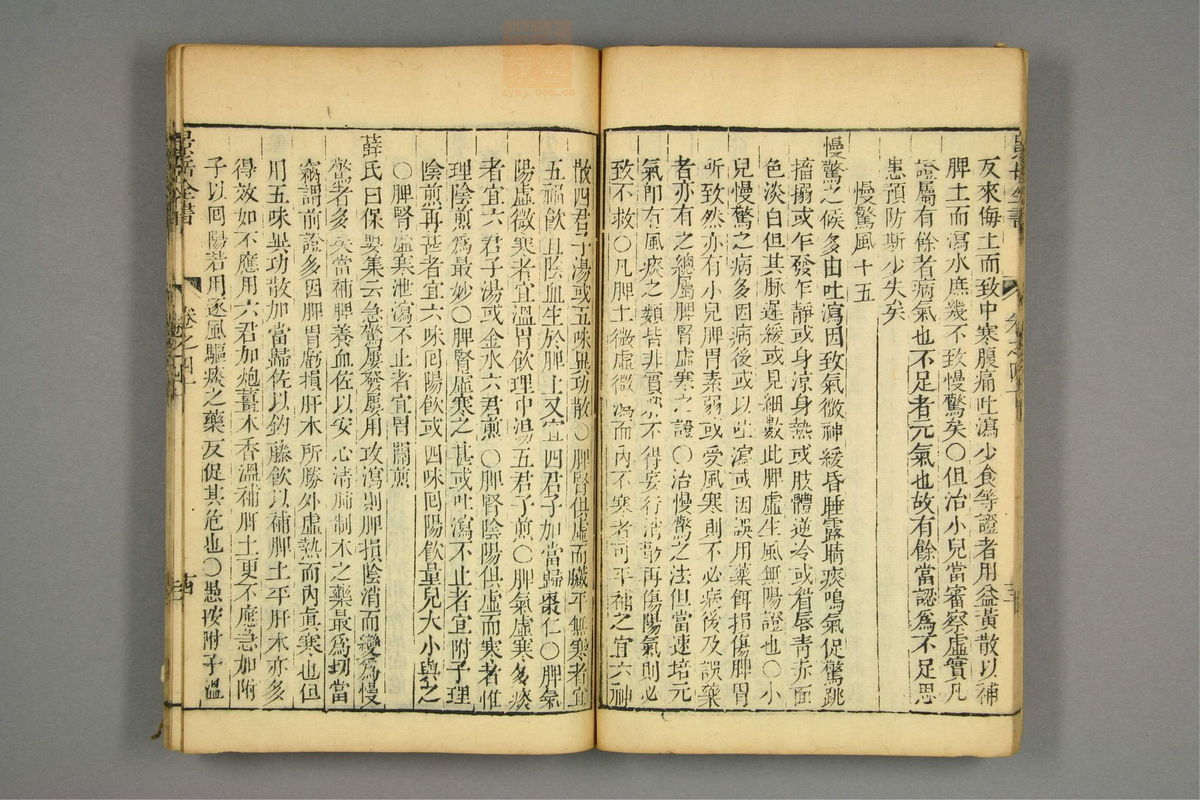 反來侮土而致中寒腹痛吐瀉少食等證者用益黃散以補
脾土而瀉水庶幾不致慢驚矣○但治小兒當審察虛實凡
證屬有餘者病氣也不足者元氣也故有餘當認爲不足思
患預防斯少失矣
慢驚風十五
慢驚之候多由吐瀉因致氣微神緩昏睡露睛痰鳴氣促驚跳
搐搦或乍發乍靜或身涼身熱或肢體逆冷或眉唇青赤面
色淡白但其脉遲緩或見細數此脾虛生風無陽證也○小
兒慢驚之病多因病後或以吐瀉或因誤用藥餌損傷脾胃
所致然亦有小兒脾胃素弱或受風寒則不必病後及誤藥
者亦有之總屬脾腎虛寒之證○治慢驚之法但當速培元
氣卽有風痰之類皆非實邪不得妄行消散再傷陽氣則必
致不救○凡脾土微虛微瀉而內不寒者可平補之宜六神
散四君子湯或五味異功散○脾腎俱虛而臟平無寒者宜
五福飲且陰血生於脾土又宜四君子加當歸棗仁○脾氣
陽虛微寒者宜溫胃飲理中湯五君子煎○脾氣虛寒多痰
者宜六君子湯或金水六君煎○脾腎陰陽俱虛而寒者惟
理陰煎爲最妙○脾腎虛寒之甚或吐瀉不止者宜附子理
陰煎再甚者宜六味回陽飲或四味回陽飲量兒大小與之
○脾腎虛寒泄瀉不止者宜胃關煎
薛氏曰保嬰集云急驚屢發屢用攻瀉則脾損陰消而變爲慢
驚者多矣當補脾養血佐以安心清肺制木之藥最爲切當
竊謂前證多因脾胃虧損肝木所勝外虛熱而內眞寒也但
用五味異功散加當歸佐以鈎藤飲以補脾土平肝木亦多
得效如不應用六君加炮薑木香溫補脾土更不應急加附
子以回陽若用逐風驅痰之藥反促其危也○愚按附子溫
景岳全書
卷之四十